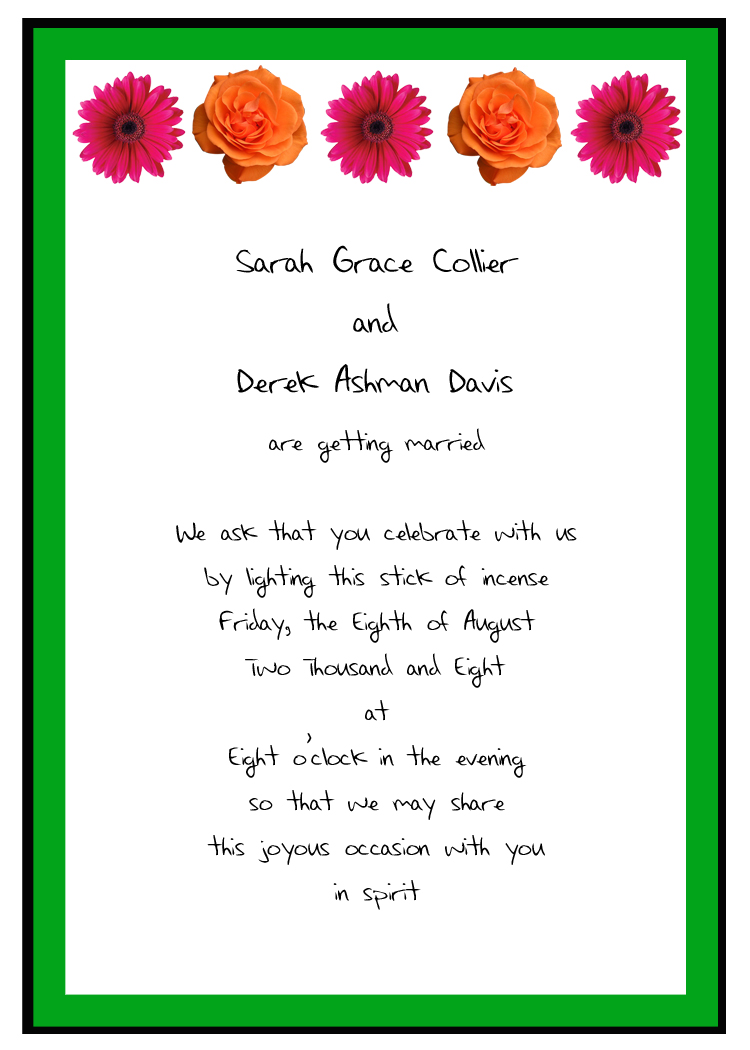 Sarah Grace Collier
and
Derek Ashman Davis
are getting married
We ask that you celebrate with us
by lighting this stick of incense
Friday, the Eighth of August
Two Thousand and Eight
at
Eight o'clock in the evening
so that we may share
this joyous occasion with you
in spirit